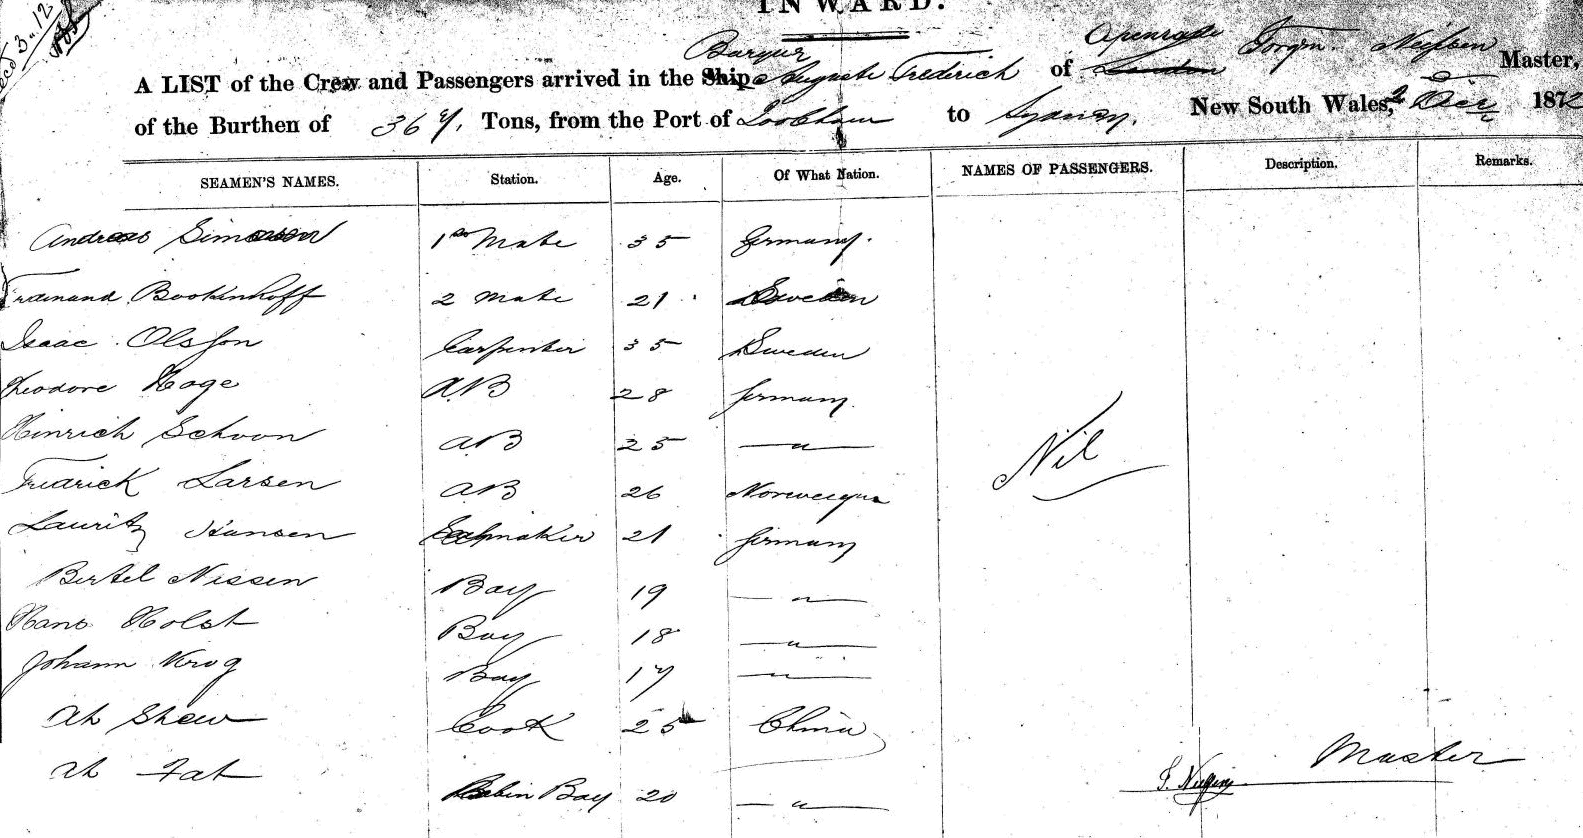 INWARD.
Recd 3. 12
Barque Apenrade
A LIST of the Crew and Passengers arrived in the Ship Auguste Frederich of London Jorgen. Neissen Master,
of the Burthen of 367. Tons, from the Port of to Sydney. New South Wales, 2 Dec 1872
SEAMEN'S NAMES. Station. Age. Of What Nation. NAMES OF PASSENGERS. Description. Remarks.
Andreas Simonsen 1st Mate 35 Germany.
Ferdinand Bookenhoff 2 Mate 21 Sweden
Isaac Olsson Carpenter 35 Sweden
Theodore Hage AB 28 Germany.
Hinrich Schoon AB 25 — " —
Fredrick Larsen AB 26 Norwegian
Lauritz Hansen Sailmaker 21 Germany
Bertel Nissen Boy 19 — " —
Hans Holst Boy 18 — " —
Johann Krog Boy 17 — " —
Ah Shew Cook 25 China
Ah Fat Cabin Boy 20 — " —
Nil
J. Neissen Master